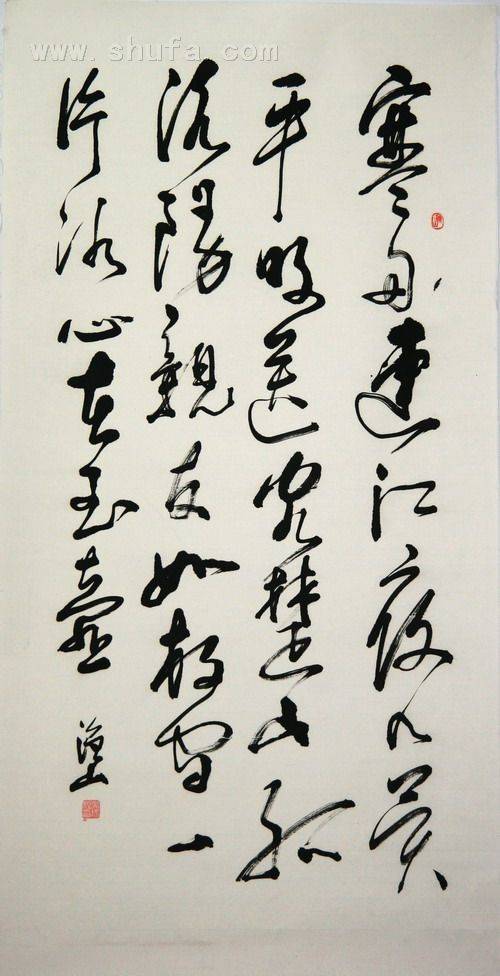 www.shufa.com
寒雨連江夜入吳
平明送客楚山孤
洛陽親友如相問一
片冰心在玉壺